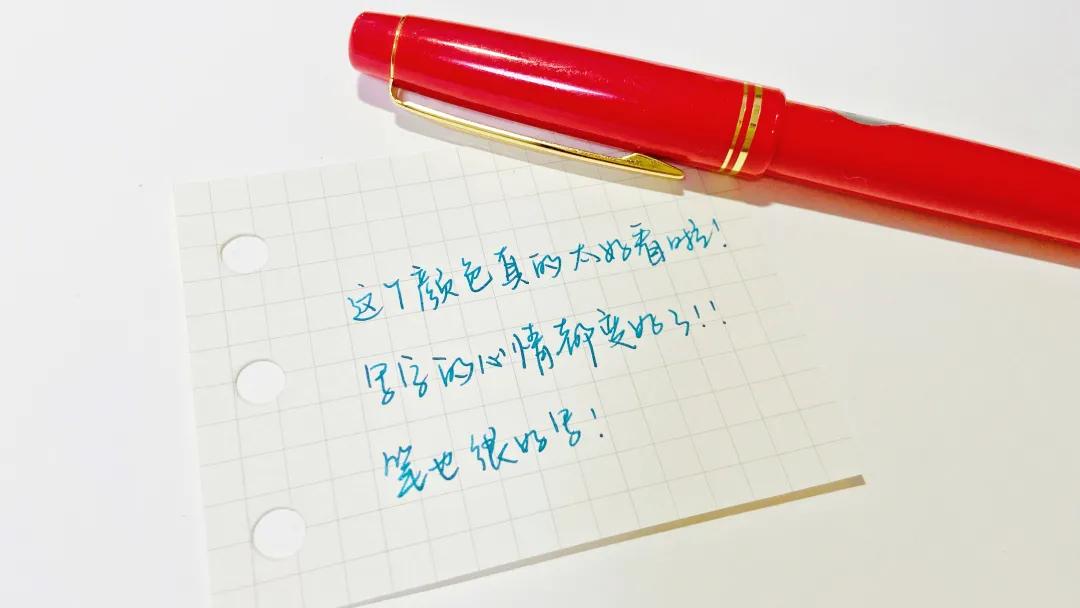 这个颜色真的太好看啦！
写字的心情都变好了！！
笔也很好写！